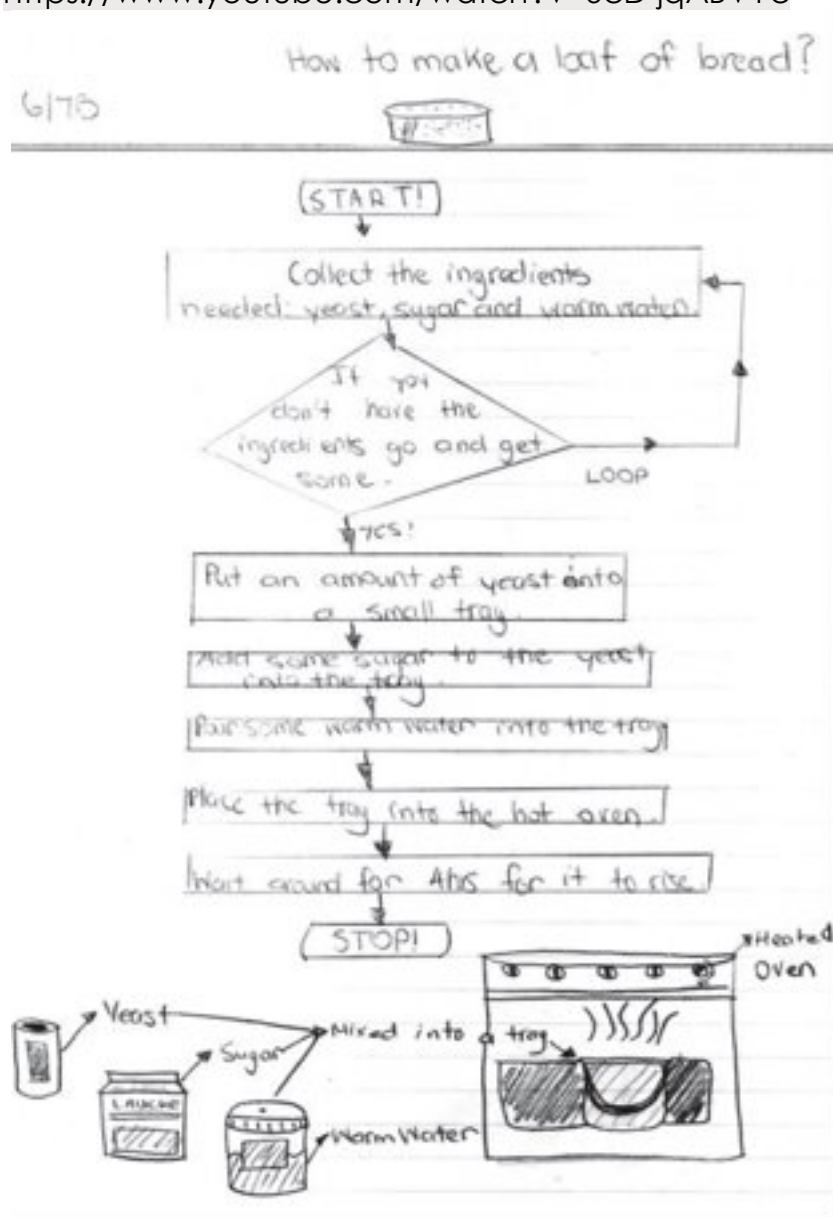 How to make a loaf of bread?
6/7B
START!
Collect the ingredients
needed: yeast, sugar and warm water.
If you
don't have the
ingredients go and get
some.
LOOP
YES!
Put an amount of yeast into
a small tray.
Add some sugar to the yeast
into the tray.
Pour some warm water into the tray
Place the tray into the hot oven.
Wait around for 4hrs for it to rise
STOP!
Heated
Oven
Yeast
Mixed into a tray
Sugar
LAUCKE
Warm Water